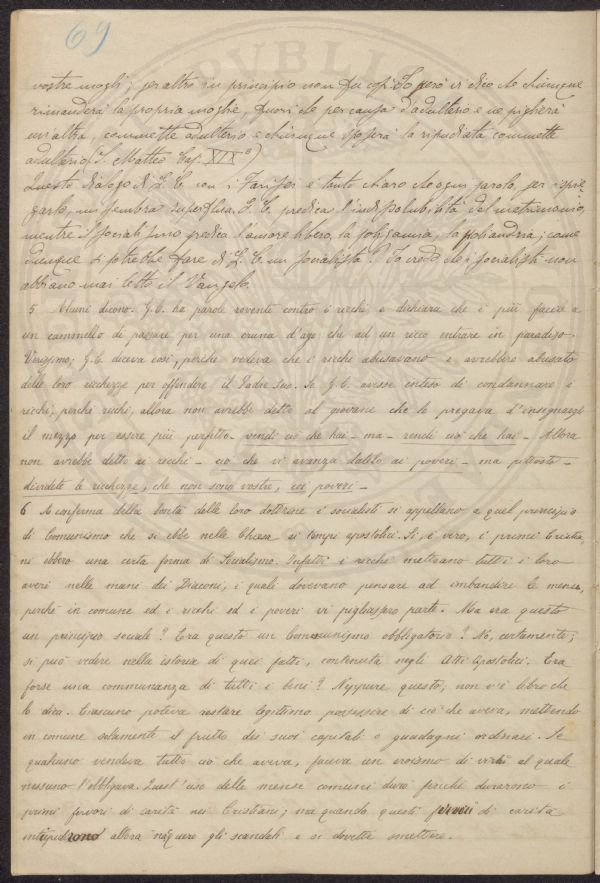 69
vostre mogli; per altro in principio non fu così. Io però vi dico che chiunque
rimanderà la propria moglie, fuori che per causa d'adulterio e ne piglierà
un'altra, commette adulterio e chiunque sposerà la ripudiata commette
adulterio (S. Matteo Cap. XIX°)
Questo dialogo di G. C. con i Farisei è tanto chiaro che ogni parola, per ispie-
garlo, mi sembra superflua. G. C. predica l'indissolubilità del matrimonio,
mentre il socialismo predica l'amore libero, la poligamia, la poliandria; come
dunque si potrebbe fare di G. C. un socialista? Io credo che i socialisti non
abbiano mai letto il Vangelo.
5 Alcuni dicono. G. C. ha parole roventi contro i ricchi e dichiara che è più facile a
un cammello di passare per una cruna d'ago che ad un ricco entrare in paradiso.
Verissimo; G. C. diceva così, perchè vedeva che i ricchi abusavano e avrebbero abusato
delle loro ricchezze per offendere il Padre suo. Se G. C. avesse inteso di condannare i
ricchi, perchè ricchi, allora non avrebbe detto al giovane che lo pregava d'insegnargli
il mezzo per essere più perfetto - vendi ciò che hai - ma - rendi ciò che hai - Allora
non avrebbe detto ai ricchi - ciò che vi avanza datelo ai poveri - ma piuttosto -
dividete le ricchezze, che non sono vostre, coi poveri -
6 A conferma della bontà delle loro dottrine i socialisti si appellano a quel principio
di Comunismo che si ebbe nella Chiesa ai tempi apostolici. Sì, è vero, i primi Cristia-
ni ebbero una certa forma di Socialismo. Infatti i ricchi mettevano tutti i loro
averi nelle mani dei Diaconi, i quali dovevano pensare ad imbandire le mense,
perchè in comune ed i ricchi ed i poveri vi pigliassero parte. Ma era questo
un principio sociale? Era questo un Comunismo obbligatorio? No, certamente;
si può vedere nella istoria di quei fatti, contenuta negli Atti Apostolici. Era
forse una comunanza di tutti i beni? Neppure questo, non v'è libro che
lo dica. Ciascuno poteva restare legittimo possessore di ciò che aveva, mettendo
in comune solamente il frutto dei suoi capitali e guadagni ordinari. Se
qualcuno vendeva tutto ciò che aveva, faceva un eroismo di virtù al quale
nessuno l'obbligava. Quest'uso delle mense comuni durò finchè durarono i
primi fervori di carità nei Cristiani; ma quando questi fervori di carità
intiepidirono allora nacquero gli scandali e si dovette smettere.